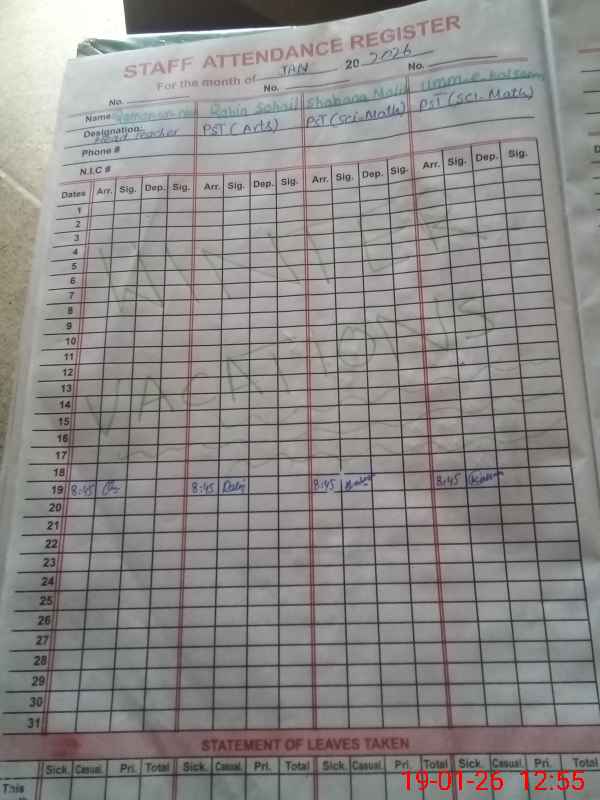 STAFF ATTENDANCE REGISTER
For the month of JAN 20 2026
No. No. No.
Name Rabia Sohail Shabana Malik Umm-e-Kalsoom
Designation: Head Teacher PST (Arts) PST (Sci-Math) PST (Sci-Math)
Phone #
N.I.C #
Dates Arr. Sig. Dep. Sig. Arr. Sig. Dep. Sig. Arr. Sig. Dep. Sig. Arr. Sig. Dep. Sig.
1
2
3
4
5
WINTER
6
7
8
9
10
11
12
13
VACATIONS
14
15
16
17
18
19 8:45 8:45 8:45 8:45
20
21
22
23
24
25
26
27
28
29
30
31
STATEMENT OF LEAVES TAKEN
Sick. Casual. Pri. Total Sick. Casual. Pri. Total Sick. Casual. Pri. Total Sick. Casual. Pri. Total
This
19-01-26 12:55